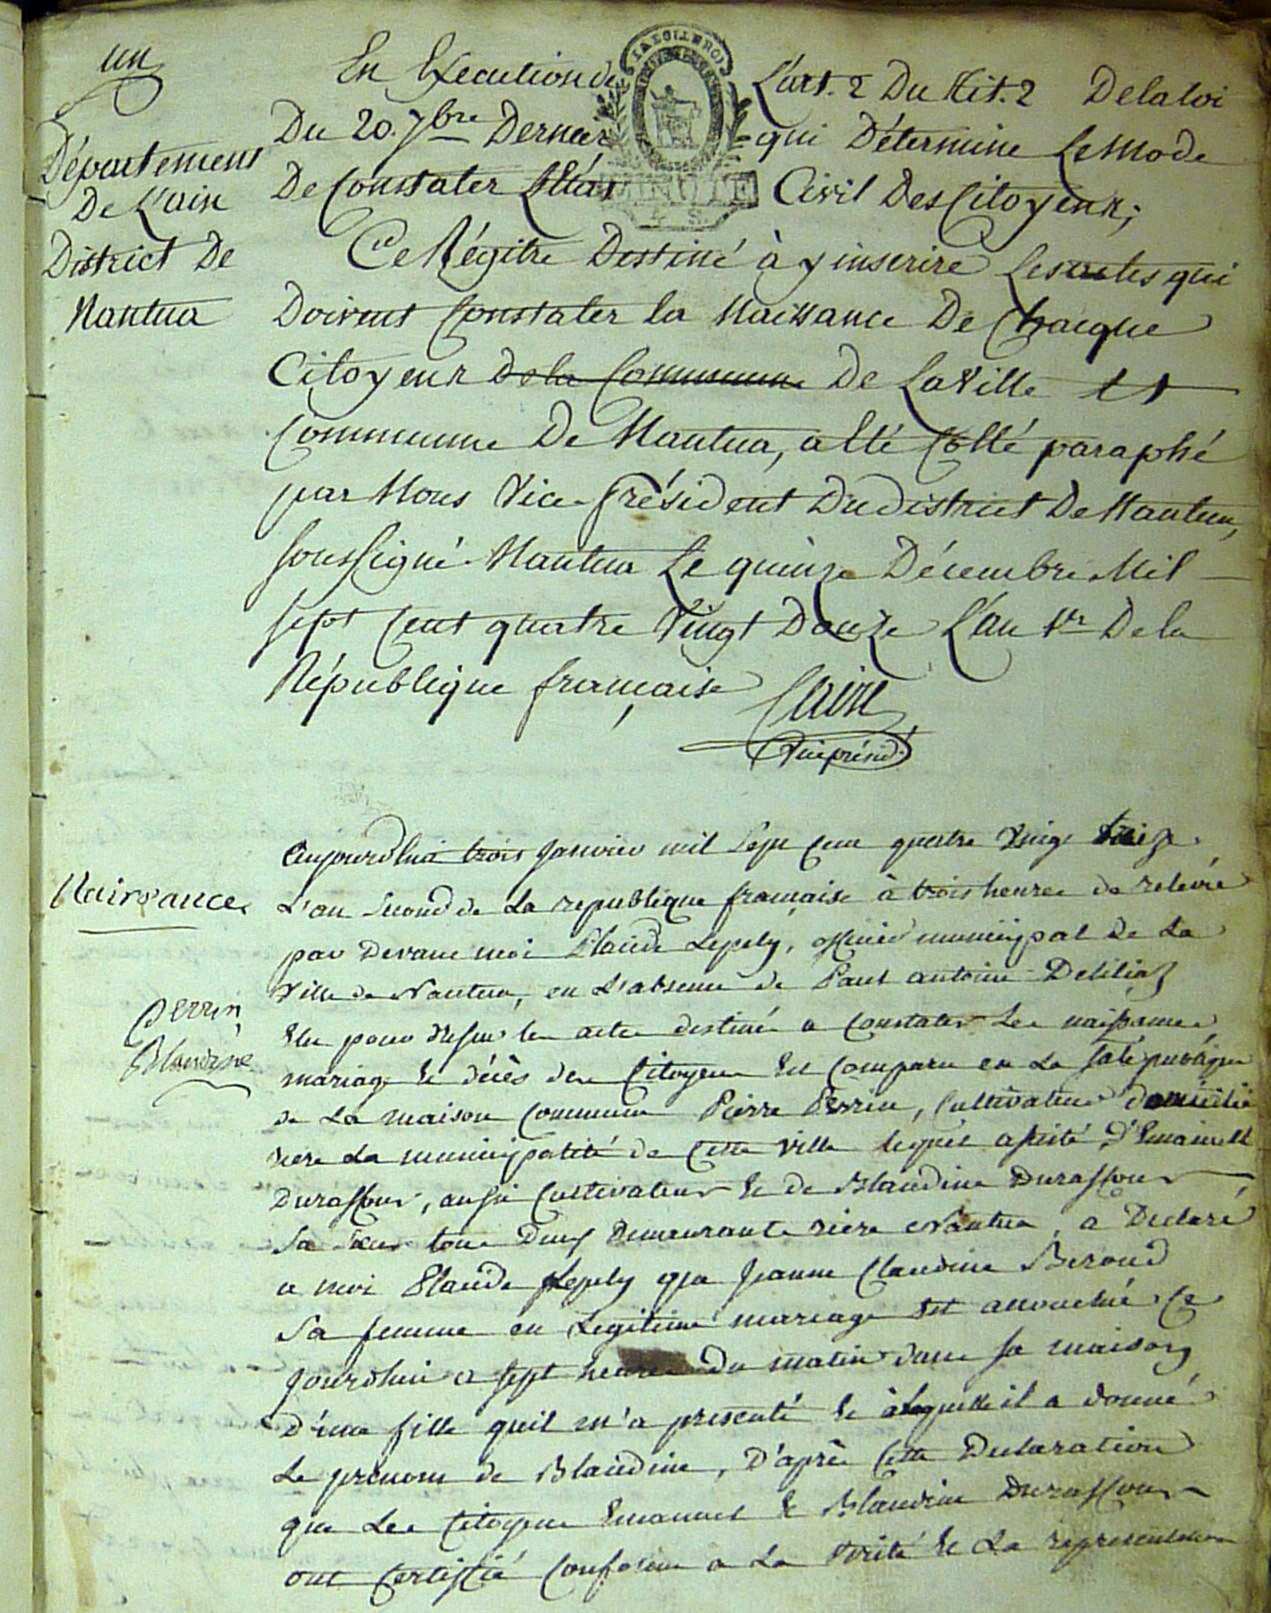 un
Département
De L'ain
District De
Nantua
En Execution de L'art. 2 Du tit. 2 De la loi
Du 20. 7bre Dernier qui Détermine Le mode
De Constater L'état Civil Des Citoyenr;
Ce Régitre Destiné à y inscrire Les actes qui
Doivent Constater la Naissance De Chaque
Citoyenr De la Commune De La Ville et
Commune De Nantua, a Eté Cotté paraphé
par Nous Vice-président Du District De Nantua,
soussigné. Nantua Le quinze Décembre Mil
sept Cent quatre Vingt Douze L'an 1er De la
République française
Viceprésid.
Naissance
Perrin
Blandine
Aujourdhui trois Janvier mil Sept cent quatre Vingt treize
L'an Second de La republique française à trois heures de relevée
par Devant moi Claude Lepely, officier municipal de La
Ville de Nantua, en L'absence de Paul antoine Deliliaz
Elu pour les actes destinés a Constater Les naissances
mariages & décès des Citoyens Est Comparu en La sale publique
de La maison Commune Pierre Perrin, Cultivateur domicilié
riere La municipalité de Cette Ville lequel assisté d'Emanuel
Duraffour, aussi Cultivateur & de Blandine Duraffour
Sa Sœur tous Deux Demeurants riere Nantua, a Declaré
a moi Claude Lepely que Jeanne Claudine Beroud
Sa femme en Legitime mariage Est accouchée Ce
Jourdhui a sept heures Du matin dans sa maison
D'une fille quil m'a presenté & à Laquelle il a donné
Le prenom de Blandine, D'après Cette Declaration
que Les Citoyens Emanuel & Blandine Duraffour
ont Certiffié Conforme a La Verité & La representation